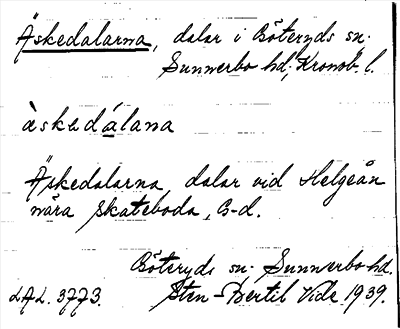 Äskedalarna, dalar i Göteryds sn.
Sunnerbo hd, Kronob. l.
àskedálana
Äskedalarna, dalar vid Helgeån
nära Skateboda, G-d.
Göteryds sn. Sunnerbo hd.
LAL. 3773. Sten-Bertil Vide 1939.